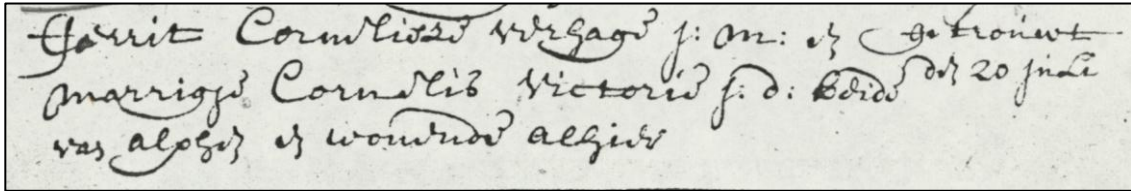 Gerrit Cornelisze verhage j: m: en getrouwt
marrigje Cornelis Victorie j: d: beide den 20 Juli
van alphen en wonende alhier